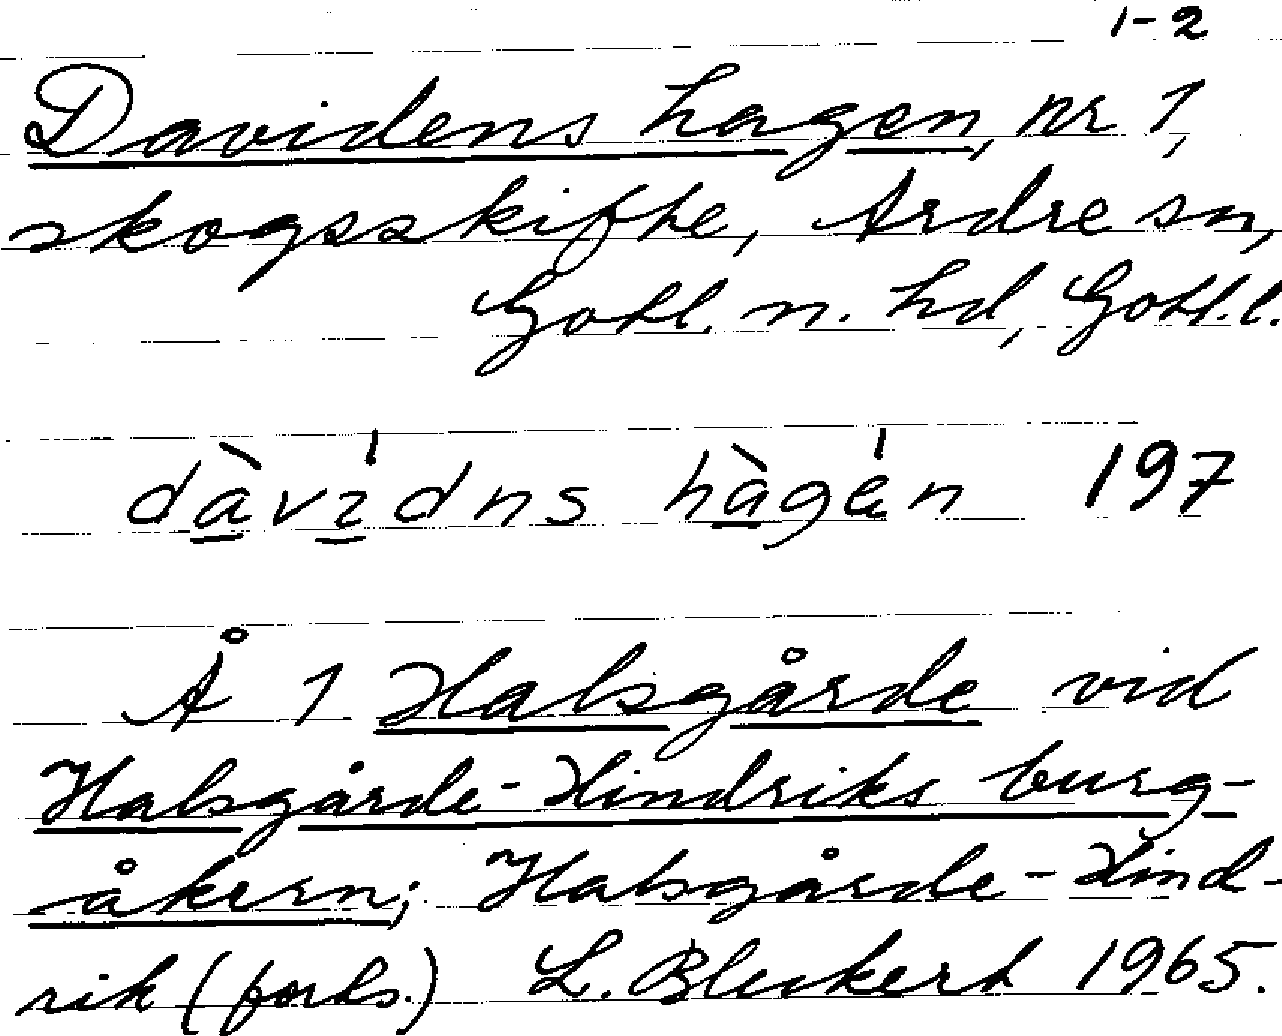 1-2
Davidens hagen, nr 1,
skogsskifte, Ardre sn,
Gotl. n. hd, Gotl. l.
dàvídns hàgén 197
Å 1 Halsgårde vid
Halsgårde-Hindriks burg-
åkern; Halsgårde-Hind-
rik (forts.) L. Bleckert 1965.